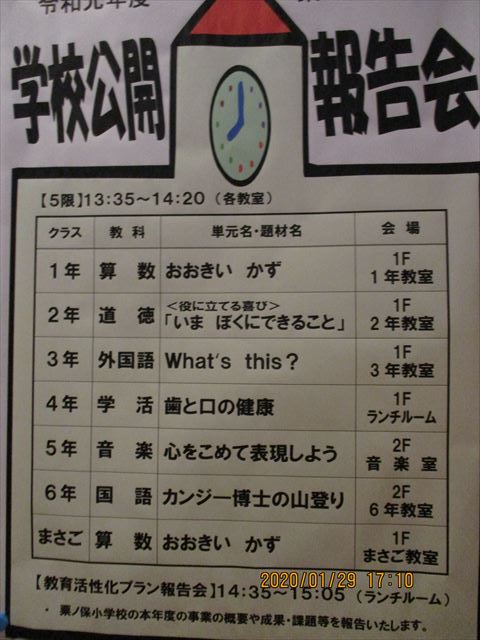 令和元年度
学校公開 報告会
【5限】13:35～14:20（各教室）
クラス 教科 単元名・題材名 会場
1年 算数 おおきい かず 1F 1年教室
2年 道徳 ＜役に立てる喜び＞「いま ぼくにできること」 1F 2年教室
3年 外国語 What's this？ 1F 3年教室
4年 学活 歯と口の健康 1F ランチルーム
5年 音楽 心をこめて表現しよう 2F 音楽室
6年 国語 カンジー博士の山登り 2F 6年教室
まさご 算数 おおきい かず 1F まさご教室
【教育活性化プラン報告会】14:35～15:05（ランチルーム）
・ 粟ノ保小学校の本年度の事業の概要や成果・課題等を報告いたします。
2020/01/29 17:10